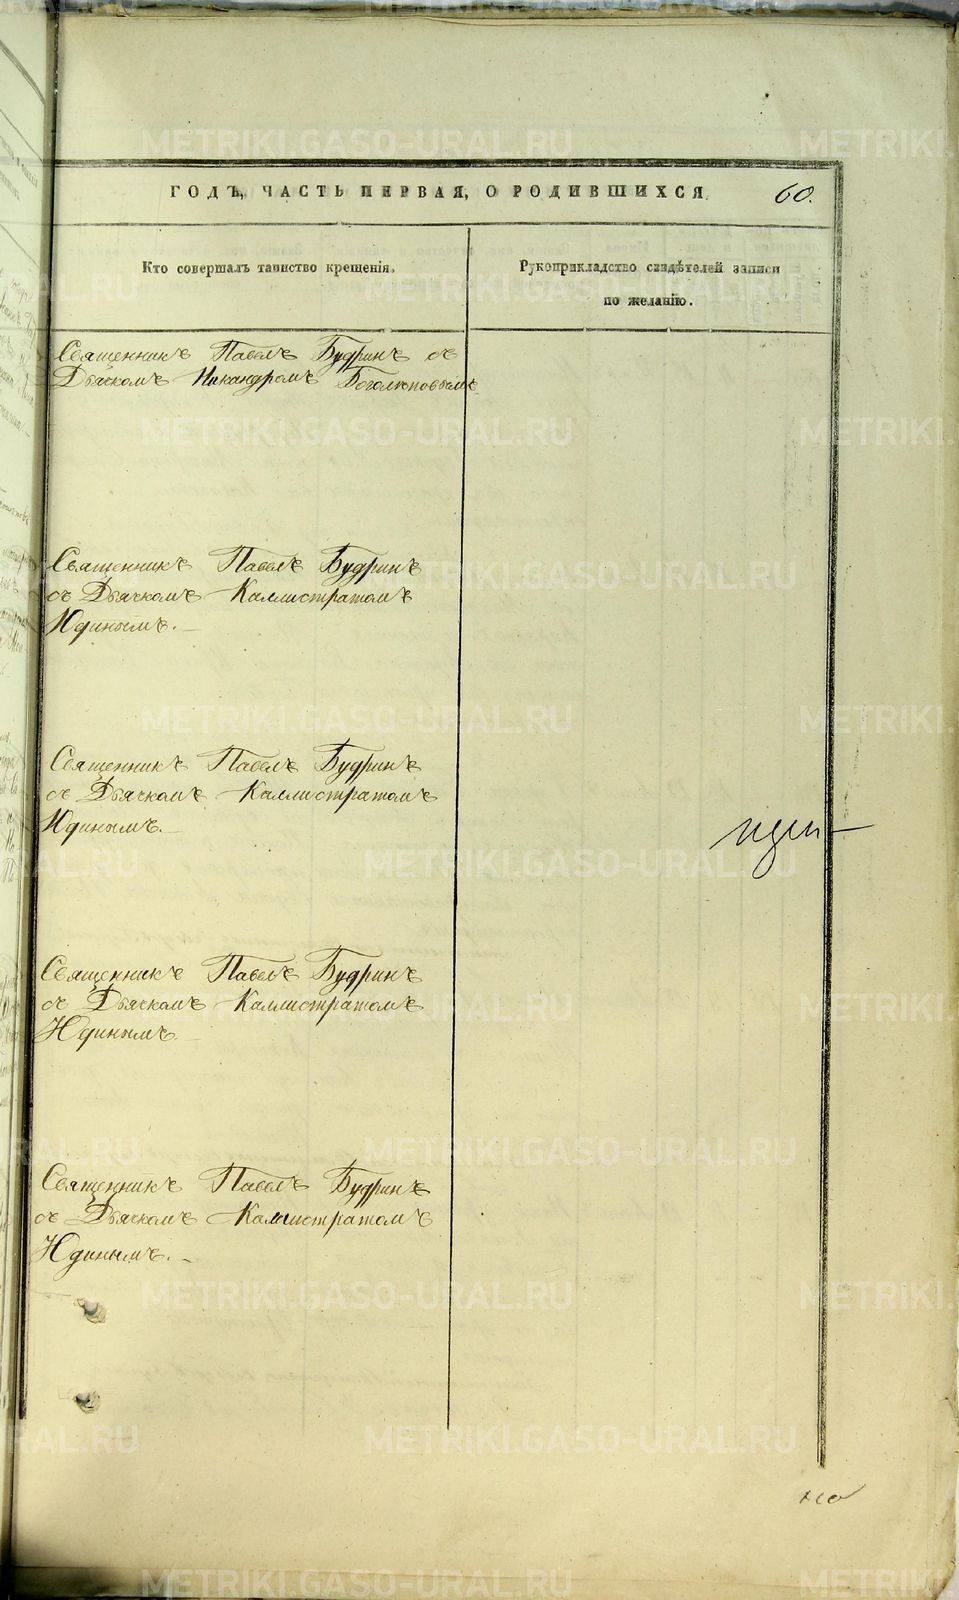 ГОДЪ, ЧАСТЬ ПЕРВАЯ, О РОДИВШИХСЯ.
60.
Кто совершалъ таинство крещенія.
Рукоприкладство свидѣтелей записи
по желанію.
Священникъ Павелъ Будринъ съ
Дьячкомъ Никандромъ Боголеповымъ
Священникъ Павелъ Будринъ
съ Дьячкомъ Каллистратомъ
Юдинымъ.
Священникъ Павелъ Будринъ
съ Дьячкомъ Каллистратомъ
Юдинымъ.
Священникъ Павелъ Будринъ
съ Дьячкомъ Каллистратомъ
Юдинымъ.
Священникъ Павелъ Будринъ
съ Дьячкомъ Каллистратомъ
Юдинымъ.
METRIKI.GASO-URAL.RU